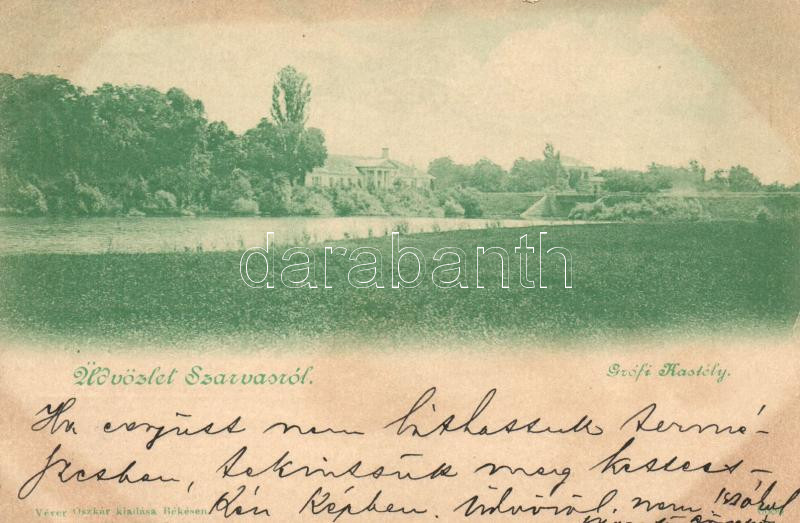 darabanth
Üdvözlet Szarvasról.
Grófi Kastély.
Ha egyutt nem láthattuk termé-
szesben, tekintsük meg
képben. Üdvözöl. nem
Véver Oszkár kiadása Békésen